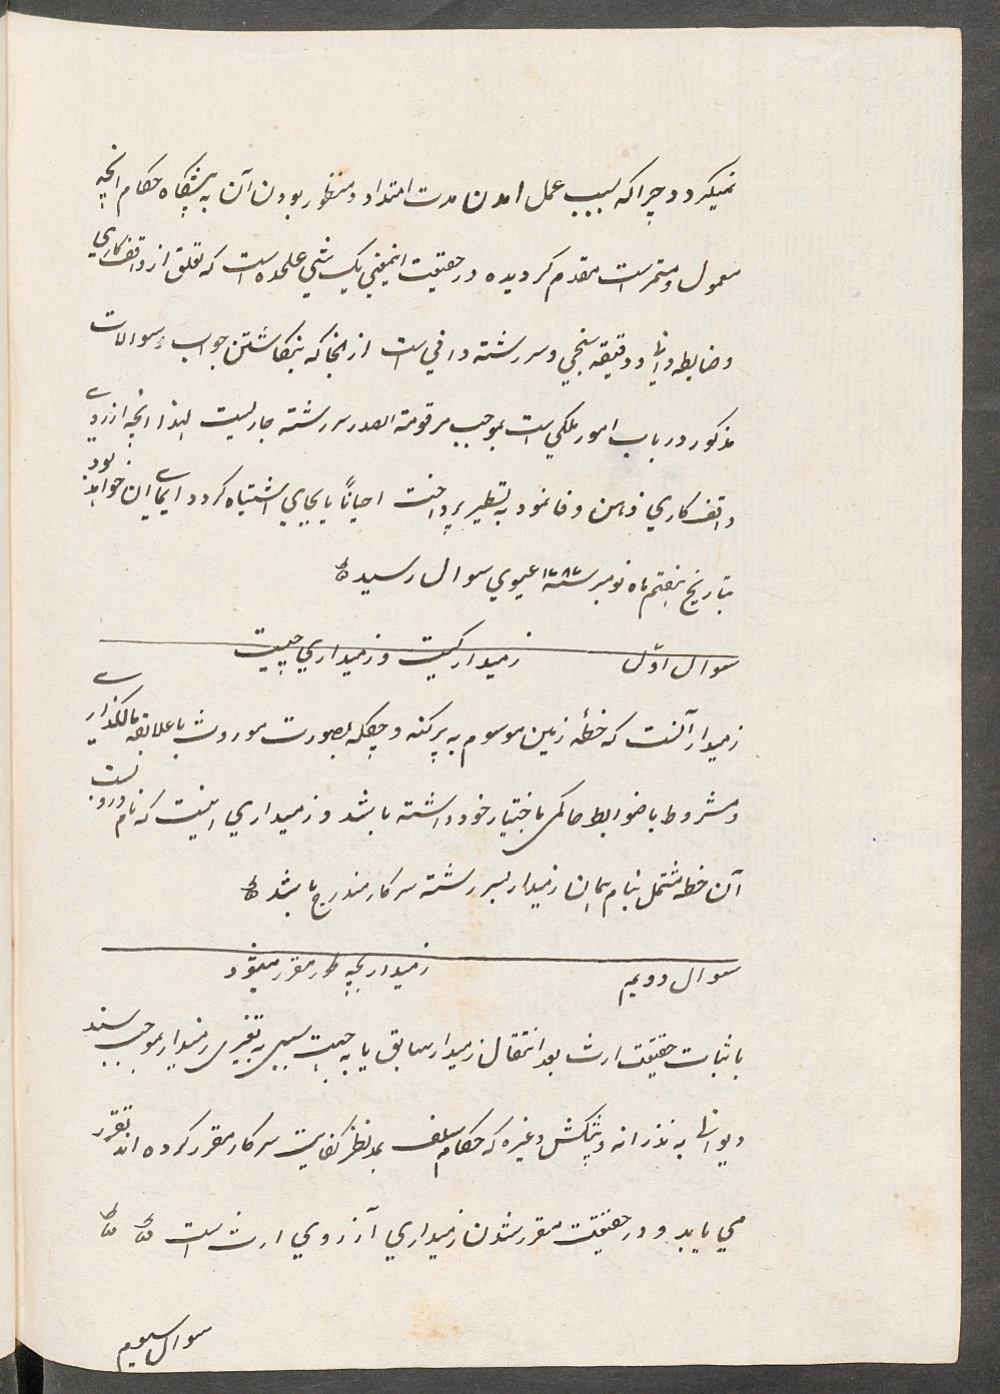 نمیکردد چرا که بسبب عمل امدن مدت امتداد و منظور بودن آن به پیشکاه حکام انچه
معمول و مستمر است مقدم کردیده در حقیقت اینمعنی یک شي علحده است که تعلق از واقف کاري
و ضابطه داني و دقیقه سنجي و سررشته دافي است از انجا که بنکاشتن جواب سوالات
مذکور در باب امور ملکي است بموجب مرقومة الصدر سررشته جاریست لهذا انچه از روي
واقف کاري ذهن وفا نمود به تسطیر پرداخت احیاناً یا بجاي اشتباه کردد ایماي ان خواهد بود
بتاریخ هفتم ماه نومبر سنه ۱۷۸۶ عیسوي سوال رسید
سوال اوّل زمیدار کیست و زمیداري چیست
زمیدار آنست که خطّه زمین موسوم به پرکنه و چکله بصورت موروث با علاقه مالکذاري
و مشروط با ضوابط حاکمي باختیار خود داشته باشد و زمیداري اینست که نام
آن خطه مشتمل بنام همان زمیدار بسررشته سرکار مندرج باشد
سوال دویم زمیدار بچه طور مقرر میشود
باثبات حقیقت ارث بعد انتقال زمیدار سابق یا به جهت سببي به تغیري زمیدار بموجب سند
دیواني به نذرانه و پیشکش وغیره که حکام سلف بمد نظر کفایت سرکار مقرر کرده اند تقرر
مي یابد و در حقیقت مقرر شدن زمیداري از روي ارث است
سوال سیوم